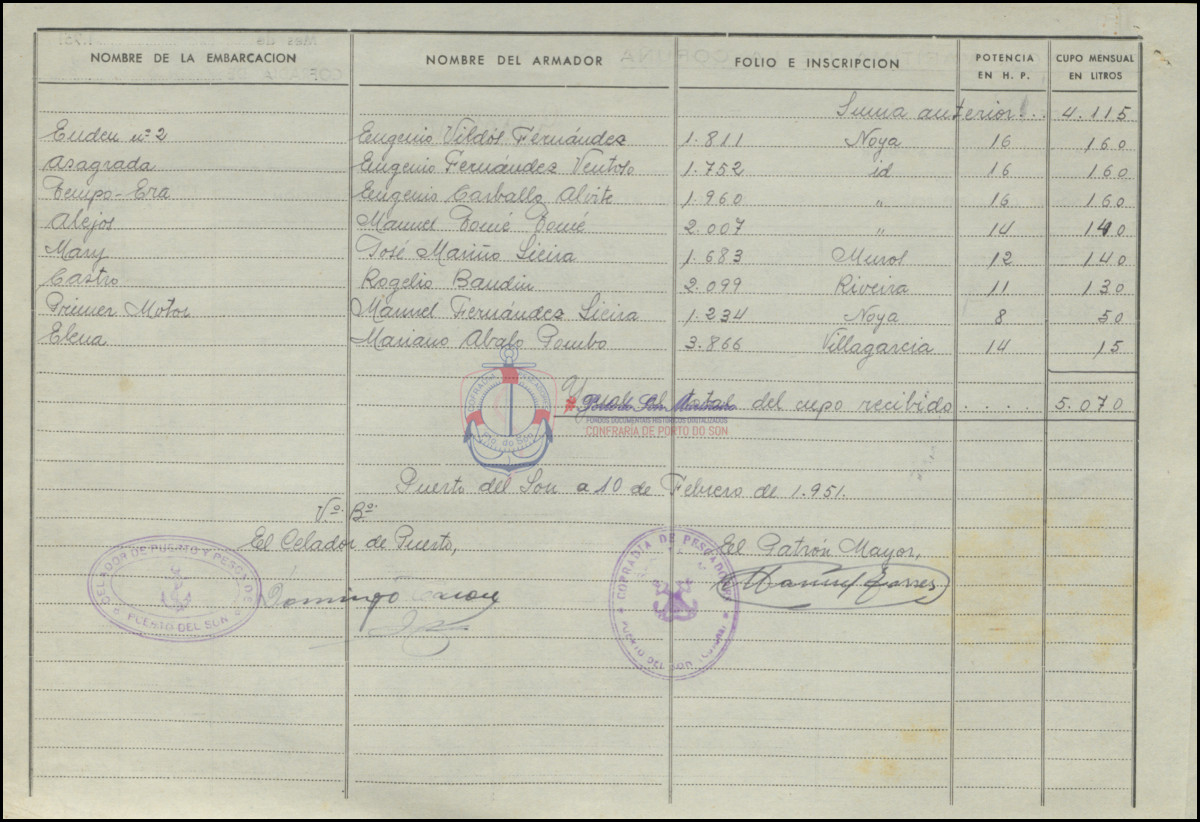 NOMBRE DE LA EMBARCACION NOMBRE DEL ARMADOR FOLIO E INSCRIPCION POTENCIA EN H. P. CUPO MENSUAL EN LITROS
Suma anterior... 4.115
nº 2 Eugenio Fernández 1.811 Noya 16 160
Asagrada Eugenio Fernández Ventoso 1.752 id 16 160
Tempo-Era Eugenio Carballo Alvite 1.960 " 16 160
Alejos Manuel Tomé Tomé 2.007 " 14 140
Mary José Mariño Sieira 1.683 Muros 12 140
Castro Rogelio Baudin 2.099 Riveira 11 130
Primer Motor Manuel Fernández Sieira 1.234 Noya 8 50
Elena Mariano Abalo Pombo 3.866 Villagarcia 14 15
total del cupo recibido .... 5.070
COFRADÍA PESCADORES
Pto. do Son
FONDOS DOCUMENTAIS HISTÓRICOS DIGITALIZADOS
CONFRARÍA DE PORTO DO SON
Puerto del Son a 10 de Febrero de 1.951.
Vº. Bº.
El Celador de Puerto,
El Patrón Mayor,
CELADOR DE PUERTO Y PESCA DE
PUERTO DEL SON
Domingo
COFRADÍA DE PESCADORES
PUERTO DEL SON
Manuel Torres